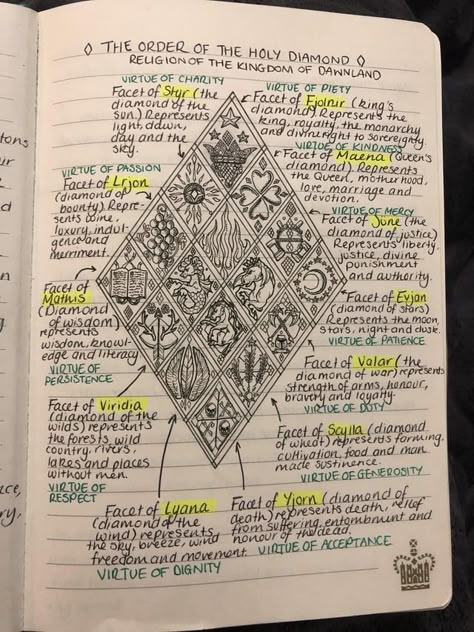 ◊ THE ORDER OF THE HOLY DIAMOND ◊
RELIGION OF THE KINGDOM OF DAWNLAND
VIRTUE OF CHARITY
Facet of Styr (the
diamond of the
sun) Represents
light, dawn,
day and the
sky.
VIRTUE OF PIETY
Facet of Fjolnir (King's
diamond) Represents the
king, royalty, the monarchy
and divine right to sovereignty.
VIRTUE OF KINDNESS
Facet of Maena (Queen's
diamond) Represents
the Queen, motherhood,
love, marriage and
devotion.
VIRTUE OF PASSION
Facet of Lrjon
(diamond of
bounty) Repre-
sents wine,
luxury, indul-
gence and
merriment.
VIRTUE OF MERCY
Facet of June (the
diamond of justice)
Represents liberty,
justice, divine
punishment
and authority.
Facet of
Mathis
(Diamond
of wisdom)
represents
wisdom, knowl-
edge and literacy
VIRTUE OF
PERSISTENCE
Facet of Evjan
(diamond of stars)
Represents the moon,
stars, night and dusk.
VIRTUE OF PATIENCE
Facet of Valar (the
diamond of war) represents
strength of arms, honour,
bravery and loyalty.
VIRTUE OF DUTY
Facet of Viridia
(diamond of the
wilds) represents
the forests, wild
country, rivers,
lakes and places
without men.
VIRTUE OF
RESPECT
Facet of Scylla (diamond
of wheat) represents farming,
cultivation, food and man
made sustinence.
VIRTUE OF GENEROSITY
Facet of Lyana
(diamond of the
wind) represents
the sky, breeze, wind
freedom and movement.
VIRTUE OF DIGNITY
Facet of Yjorn (diamond of
death) represents death, relief
from suffering, entombment and
honour of the dead.
VIRTUE OF ACCEPTANCE